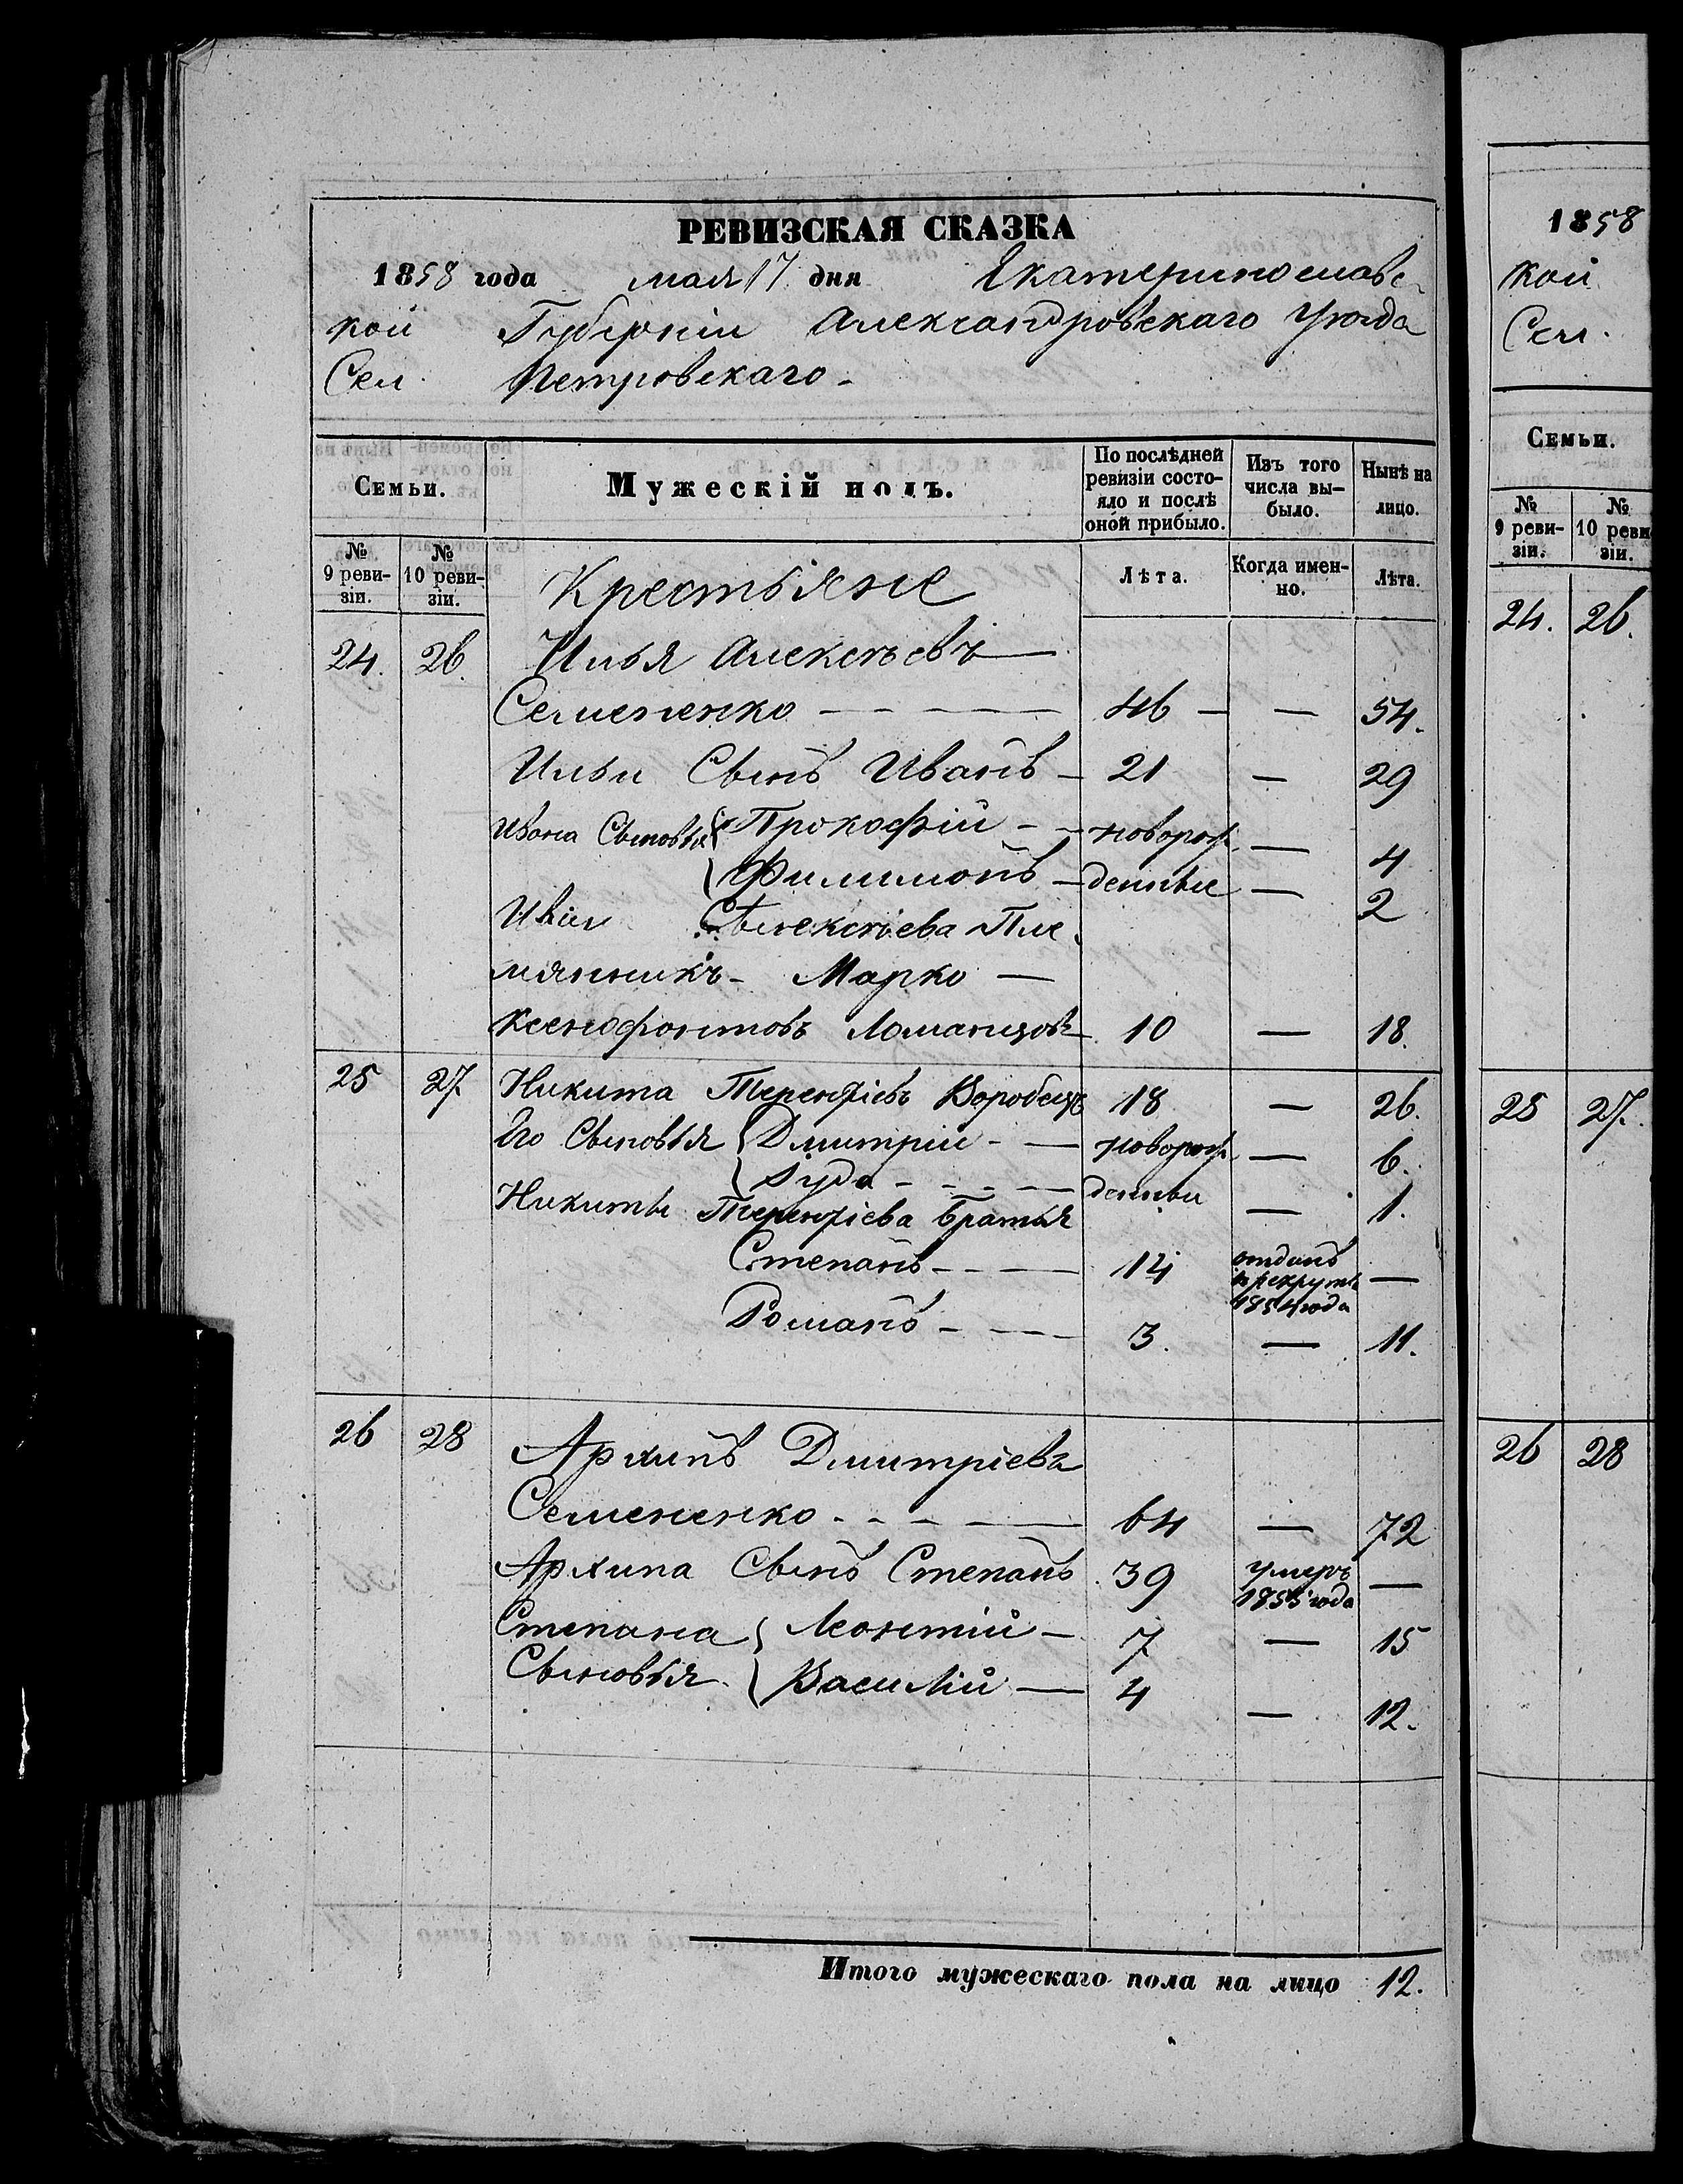 РЕВИЗСКАЯ СКАЗКА
1858 года мая 17 дня Екатеринославс-
кой Губерніи Александровскаго Уѣзда
Сел. Петровскаго
Семьи.
Мужескій полъ.
По послѣдней ревизіи состо-
яло и послѣ
оной прибыло.
Изъ того
числа вы-
было.
Нынѣ на
лицо.
№ 9 реви-
зіи.
№ 10 реви-
зіи.
Крестьяне
Лѣта.
Когда имен-
но.
Лѣта.
24. 26. Илья Алексѣевъ
Семененко 46 — — 54.
Ильи Сынъ Иванъ — 21 — 29
Ивана Сыновья Прокофій — новорож — 4
Филимонъ — денные — 2
Алексѣева Пле
мянникъ — Марко —
Ксенофонтовъ 10 — 18.
25 27 Никита Терентіевъ Воробецъ 18 — 26.
Его Сыновья Дмитрій — новорож — 6.
Іуда — денные — 1.
Никиты Терентіева братья
Степанъ — 14 отданъ
в рекруты
1854 года —
Романъ — 3. — 11.
26 28 Архипъ Дмитріевъ
Семененко — 64 — 72
Архипа Сынъ Степанъ 39 умеръ
1855 года —
Степана Леонтій — 7 — 15
Сыновья Василій — 4 — 12.
Итого мужескаго пола на лицо 12.
1858
кой
Сел.
Семьи.
№ 9 реви-
зіи.
№ 10 реви
зіи.
24. 26.
25 27.
26 28